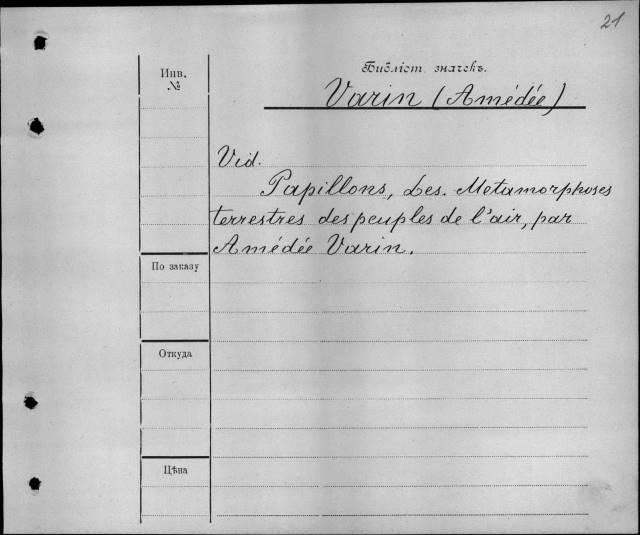 21
Инв.
№
Библіот. значекъ.
Varin (Amédée)
Vid.
Papillons, Les. Metamorphoses
terrestres des peuples de l'air, par
Amédée Varin.
По заказу
Откуда
Цѣна